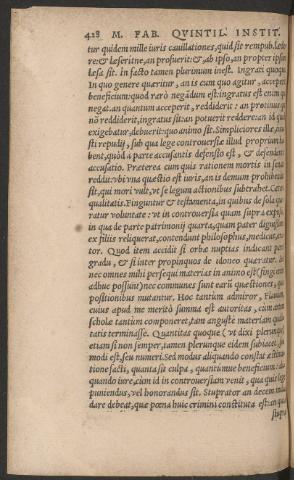 428 M. FAB. QVINTIL. INSTIT.
tur quidem mille iuris cauillationes, quid sit rempub. læde
re: & læserit ne, an profuerit: & ab ipso, an propter ipsum
læsa sit. in facto tamen plurimum inest. Ingrati quoque
In quo genere quæritur, an is cum quo agitur, acceperit
beneficium: quod raro negandum est: ingratus est enim qui
negat. an quantum acceperit, reddiderit: an protinus qui
nō reddiderit, ingratus sit: an potuerit reddere: an id quod
exigebatur, debuerit: quo animo sit. Simpliciores illæ, iniu
sti repudij, sub qua lege controuersiæ illud proprium ha
bent, quòd a parte accusantis defensio est, & defendentis
accusatio. Præterea cum quis rationem mortis in senatu
reddit: vbi vna quæstio est iuris, an is demum prohibendus
sit, qui mori vult, vt se legum actionibus subtrahat. Cætera
qualitatis. Finguntur & testamenta, in quibus de sola quæ
ratur voluntate: vt in controuersia quam supra exposui:
in qua de parte patrimonij quarta, quam pater dignissimo
ex filijs reliquerat, contendunt philosophus, medicus, ora
tor. Quod item accidit si orbæ nuptias indicant pares
gradu, & si inter propinquos de idoneo quæratur. Sed
nec omnes mihi persequi materias in animo est (fingi enim
adhuc possunt) nec communes sunt earū quæstiones, quia
positionibus mutantur. Hoc tantùm admiror, Flauum,
cuius apud me merito summa est autoritas, cum artem
scholæ tantùm componeret, tam augustè materiam quali
tatis terminasse. Quantitas quoque (vt dixi plerunque,
etiam si non semper, tamen plerunque eidem subiacet, seu
modi est, seu numeri. Sed modus aliquando constat æstima
tione facti, quanta sit culpa, quantúmue beneficium: ali
quando iure, cùm id in controuersiam venit, qua quis lege
puniendus, vel honorandus sit. Stuprator an decem millia
dare debeat, quæ pœna huic crimini constituta est: an quia
stupra